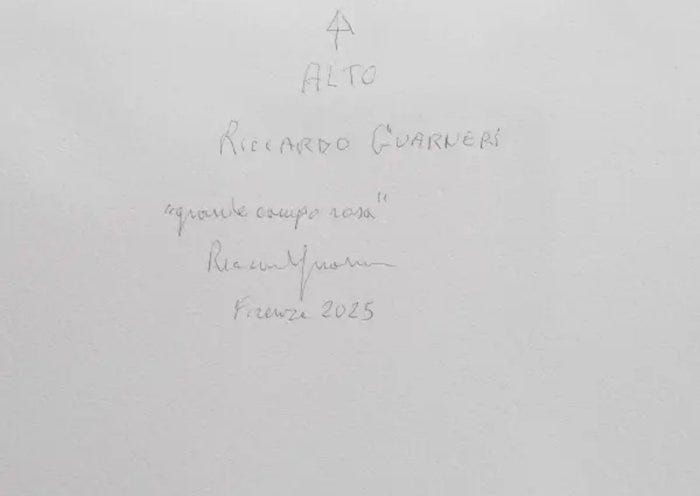 ALTO
RICCARDO GUARNERI
"grande campo rosa"
Firenze 2025